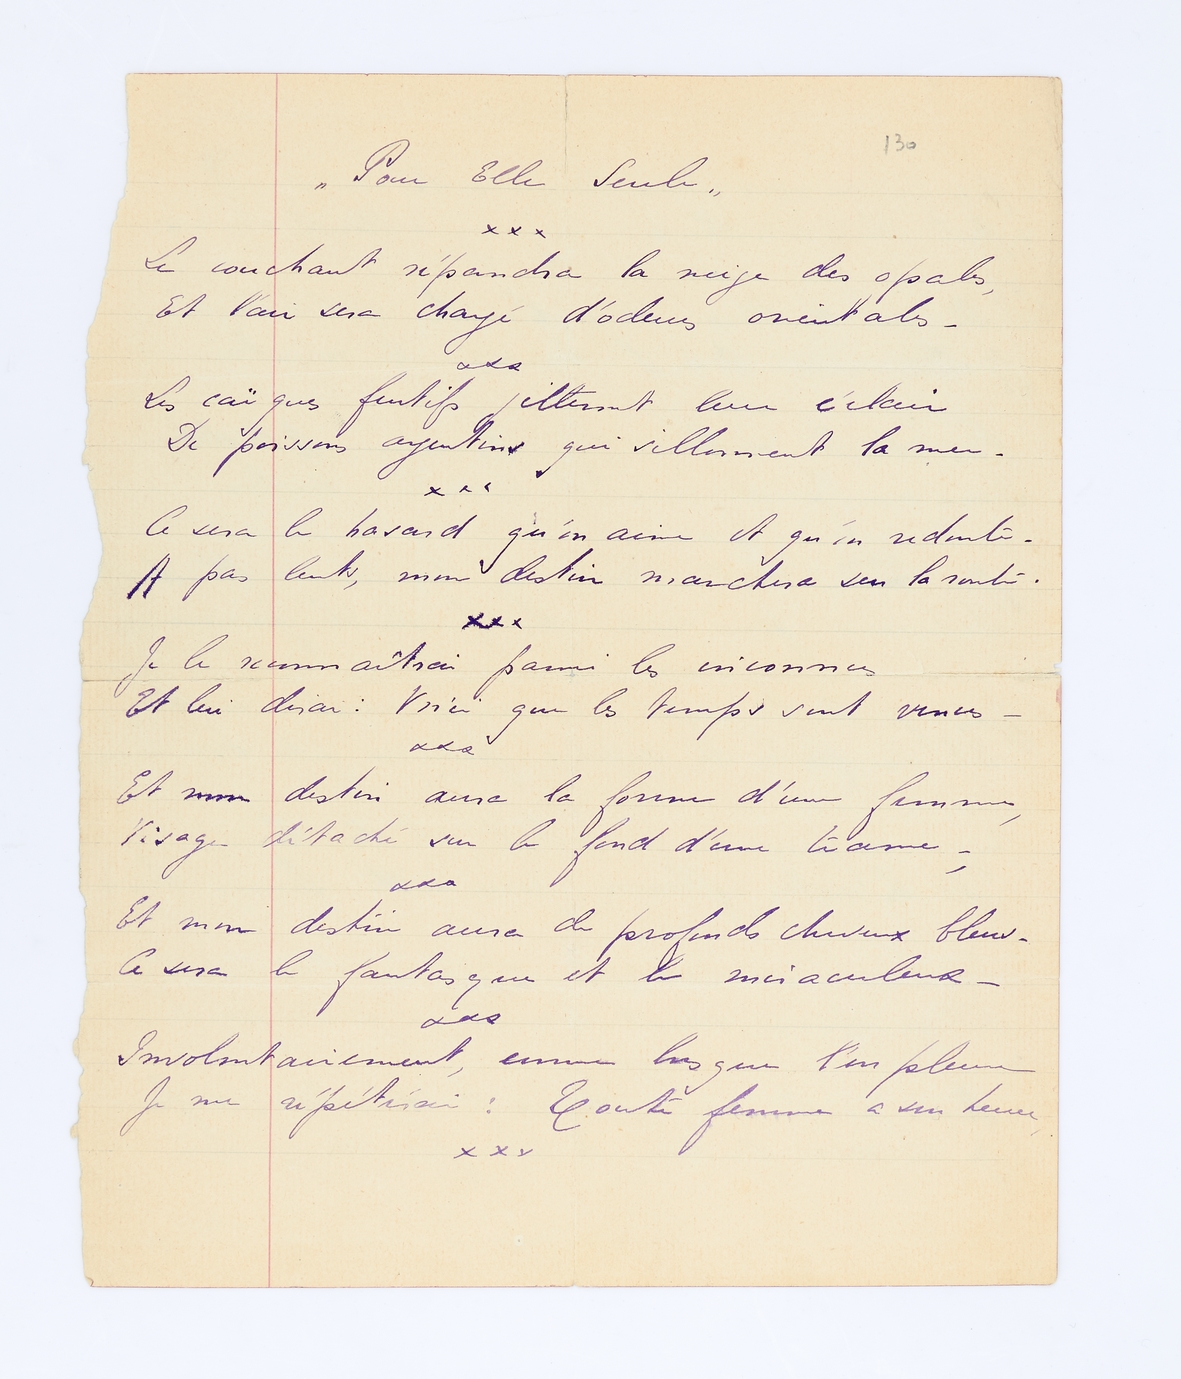 130
„ Pour Elle Seule „
x x x
Le couchant répandra la neige des opales,
Et l'air sera chargé d'odeurs orientales -
x x x
Les caïques furtifs jetteront leur éclair
De poissons argentins qui sillonnent la mer -
x x x
Ce sera le hasard qu'on aime et qu'on redoute -
A pas lents, mon destin marchera sur la route .
x x x
Je le reconnaîtrai parmi les inconnus
Et lui dirai : Voici que les temps sont venus -
x x x
Et mon destin aura la forme d'une femme,
Visage détaché sur le fond d'une trame - ;
x x x
Et mon destin aura de profonds cheveux bleus -
Ce sera le fantasque et le miraculeux -
x x x
Involontairement, comme lorsque l'on pleure
Je me répéterai : Toute femme a son heure,
x x x